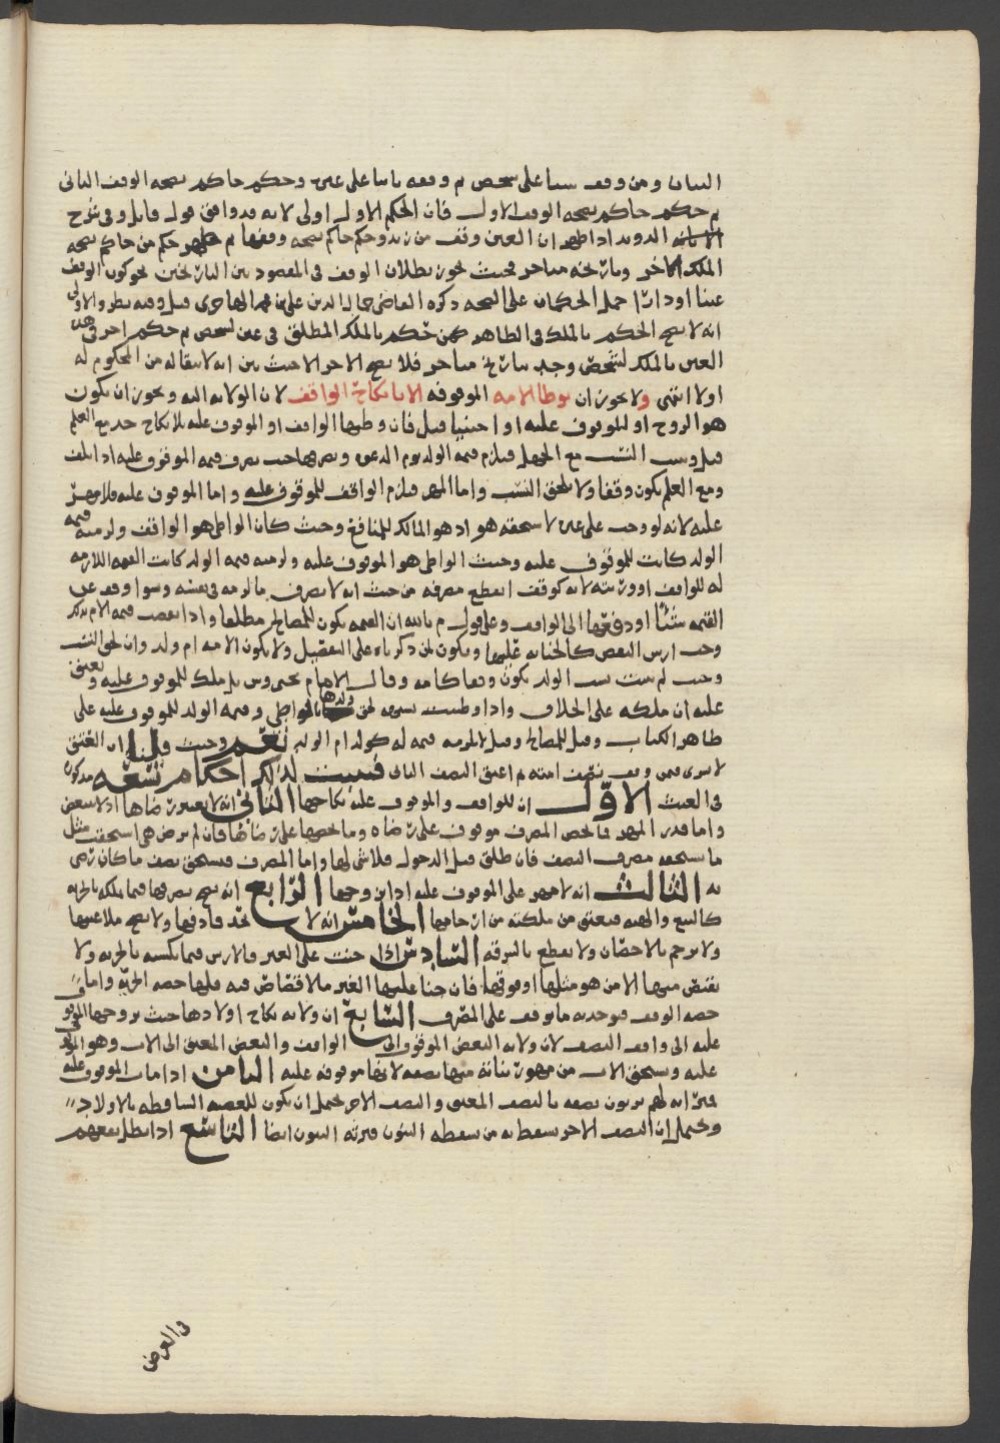 البيان ومن وقف شيئا على شخص ثم وقفه ثانيا على غيره وحكم حاكم بصحة الوقف الثاني
ثم حكم حاكم بصحة الوقف الاول فان الحكم الاول اولى لانه قد وافق قول قايل وفي شرح
الابانة اذا ظهر ان العين وقف من زيد وحكم حاكم بصحة وقفها ثم ظهر حكم من حاكم بصحة
الملك لاخر وتاريخه متاخر فحيث يجوز بطلان الوقف في المقصود بين التاريخين نحو كون الوقف
عينا او دارا حمل الحكمان على الصحة ذكره القاضي جمال الدين علي بن قيل وفيه نظر والاولى
انه لا يصح الحكم بالملك في الظاهر كمن حكم بالملك المطلق في عين لشخص ثم حكم اخر في هذه
العين بالملك لشخص وجد بتاريخ متاخر فلا يصح الاخر الا حيث بين انه لا من المحكوم له
اولا انتهى ولا يجوز ان يوطأ الامه الموقوفه الا بانكاح الواقف لان الولايه اليه ويجوز ان يكون
هو الزوج او الموقوف عليه او اجنبيا قيل فان وطيها الواقف او الموقوف عليه بلا نكاح حد مع العلم
قيل وثبت النسب مع الجهل فيلزم قيمه الولد يوم الدعوى ويصرفها حيث يصرف قيمه الموقوف عليه اذا تلف
ومع العلم يكون وقفا ولا يلحق النسب واما المهر فيلزم الواقف للموقوف عليه واما الموقوف عليه فلا مهر
عليه لانه لو وجب على غيره لاستحقه هو اذ هو المالك للمنافع وحيث كان الواطي هو الواقف ولزمته قيمه
الولد كانت للموقوف عليه وحيث الواطي هو الموقوف عليه ولزمته قيمه الولد كانت القيمه اللازمه
له للواقف او ورثته لانه كوقف انقطع مصرفه من حيث انه لا يصرف ما لزمه في نفسه وسوا وقف عن
القيمه شيئا او دفعها الى الواقف وعلى قول م بالله ان القيمه يكون للمصالح مطلقا واذا نقصت قيمه الام بذلك
وجب ارش النقص كالجنايه عليها ويكون لمن ذكرناه على التفصيل ولا يكون الامه ام ولد وان لحق النسب
وحيث لم يثبت نسب الولد يكون وقفا كامه وقال الامام يحيى وس بل ملك للموقوف عليه ويعتق
عليه ان ملكه على الخلاف واذا وطيت بشبهه لحق ولدها بالواطي وقيمه الولد للموقوف عليه على
ظاهر الكتاب وقيل للمصالح وقيل لا يلزمه قيمه له كولد ام الولد نعم وحيث قلنا ان العتق
لا يسري فمن وقف نصف امته ثم اعتق النصف الثاني فيثبت لذلك احكام تسعه مذكوره
في الغيث الاول ان للواقف والموقوف عليه نكاحها الثاني انه لا يعتبر رضاها اذ لا يبعض
واما قدر المهر فالحصص المصرف موقوف على رضاه وما يخصها على رضاها فان لم يرض هي استحقت مثل
ما يستحقه مصرف النصف فان طلق قبل الدخول فلا شي لها واما المصرف فيستحق نصف ما كان رضي
به الثالث انه لا مهر على الموقوف عليه اذا تزوجها الرابع انه يصح تصرفها فيما ملكه بالحريه
كالبيع والهبه فيعتق من ملكته من ارحامها الخامس انه لا يحد قاذفها ولا يصح ملاعنتها
ولا يرجم بالاحصان ولا يقطع بالسرقه السادس اذا جنت على الغير فالارش فيما يكسبه بالحريه ولا
يقتص منها الا من هو مثلها او فوقها فان جنا عليها الغير فلا قصاص فيه فلها حصه الحريه واما
حصه الوقف فيؤخذ به ما يوقف على المصرف السابع ان ولايه نكاح اولادها حيث يزوجها الموقوف
عليه الى واقف النصف لان ولايه البعض الموقوف الى الواقف والبعض المعتق الى الاب وهو الموقوف
عليه ويستحق الاب من مهور بناته منها نصفه لانها موقوفه عليه الثامن اذا مات الموقوف عليه
فيرثانه لهم يرثون نصفه بالنصف المعتق والنصف الاخر يحتمل ان يكون للعصبه الساقطه بالاولاد
ويحتمل ان النصف الاخر يسقط به من يسقطه البنون فيرثه البنون ايضا التاسع اذا بطل نفعهم
والعرض